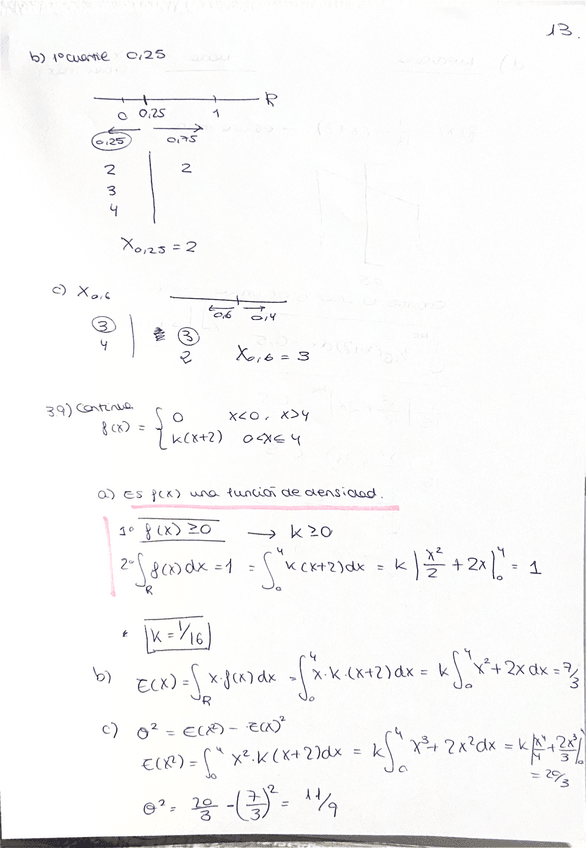 13.
b) 1º cuartil 0,25
R
0 0,25 1
0,25 0,75
2 2
3
4
X0,25 = 2
c) X0,6
0,6 0,4
3 3
4 2 X0,6 = 3
39) Continua
f(x) = { 0 x<0, x>4
k(x+2) 0<x≤4
a) Es f(x) una función de densidad.
1º f(x) ≥0 → k≥0
2º ∫R f(x) dx = 1 = ∫₀⁴ k(x+2)dx = k | x²/2 + 2x |₀⁴ = 1
* k = 1/16
b) E(X) = ∫R x·f(x) dx = ∫₀⁴ x·k·(x+2)dx = k ∫₀⁴ x²+2x dx = 7/3
c) θ² = E(X²) - E(X)²
E(X²) = ∫₀⁴ x²·k(x+2)dx = k ∫₀⁴ x³+2x²dx = k | x⁴/4 + 2x³/3 |₀⁴
= 20/3
θ² = 20/3 - (7/3)² = 11/9